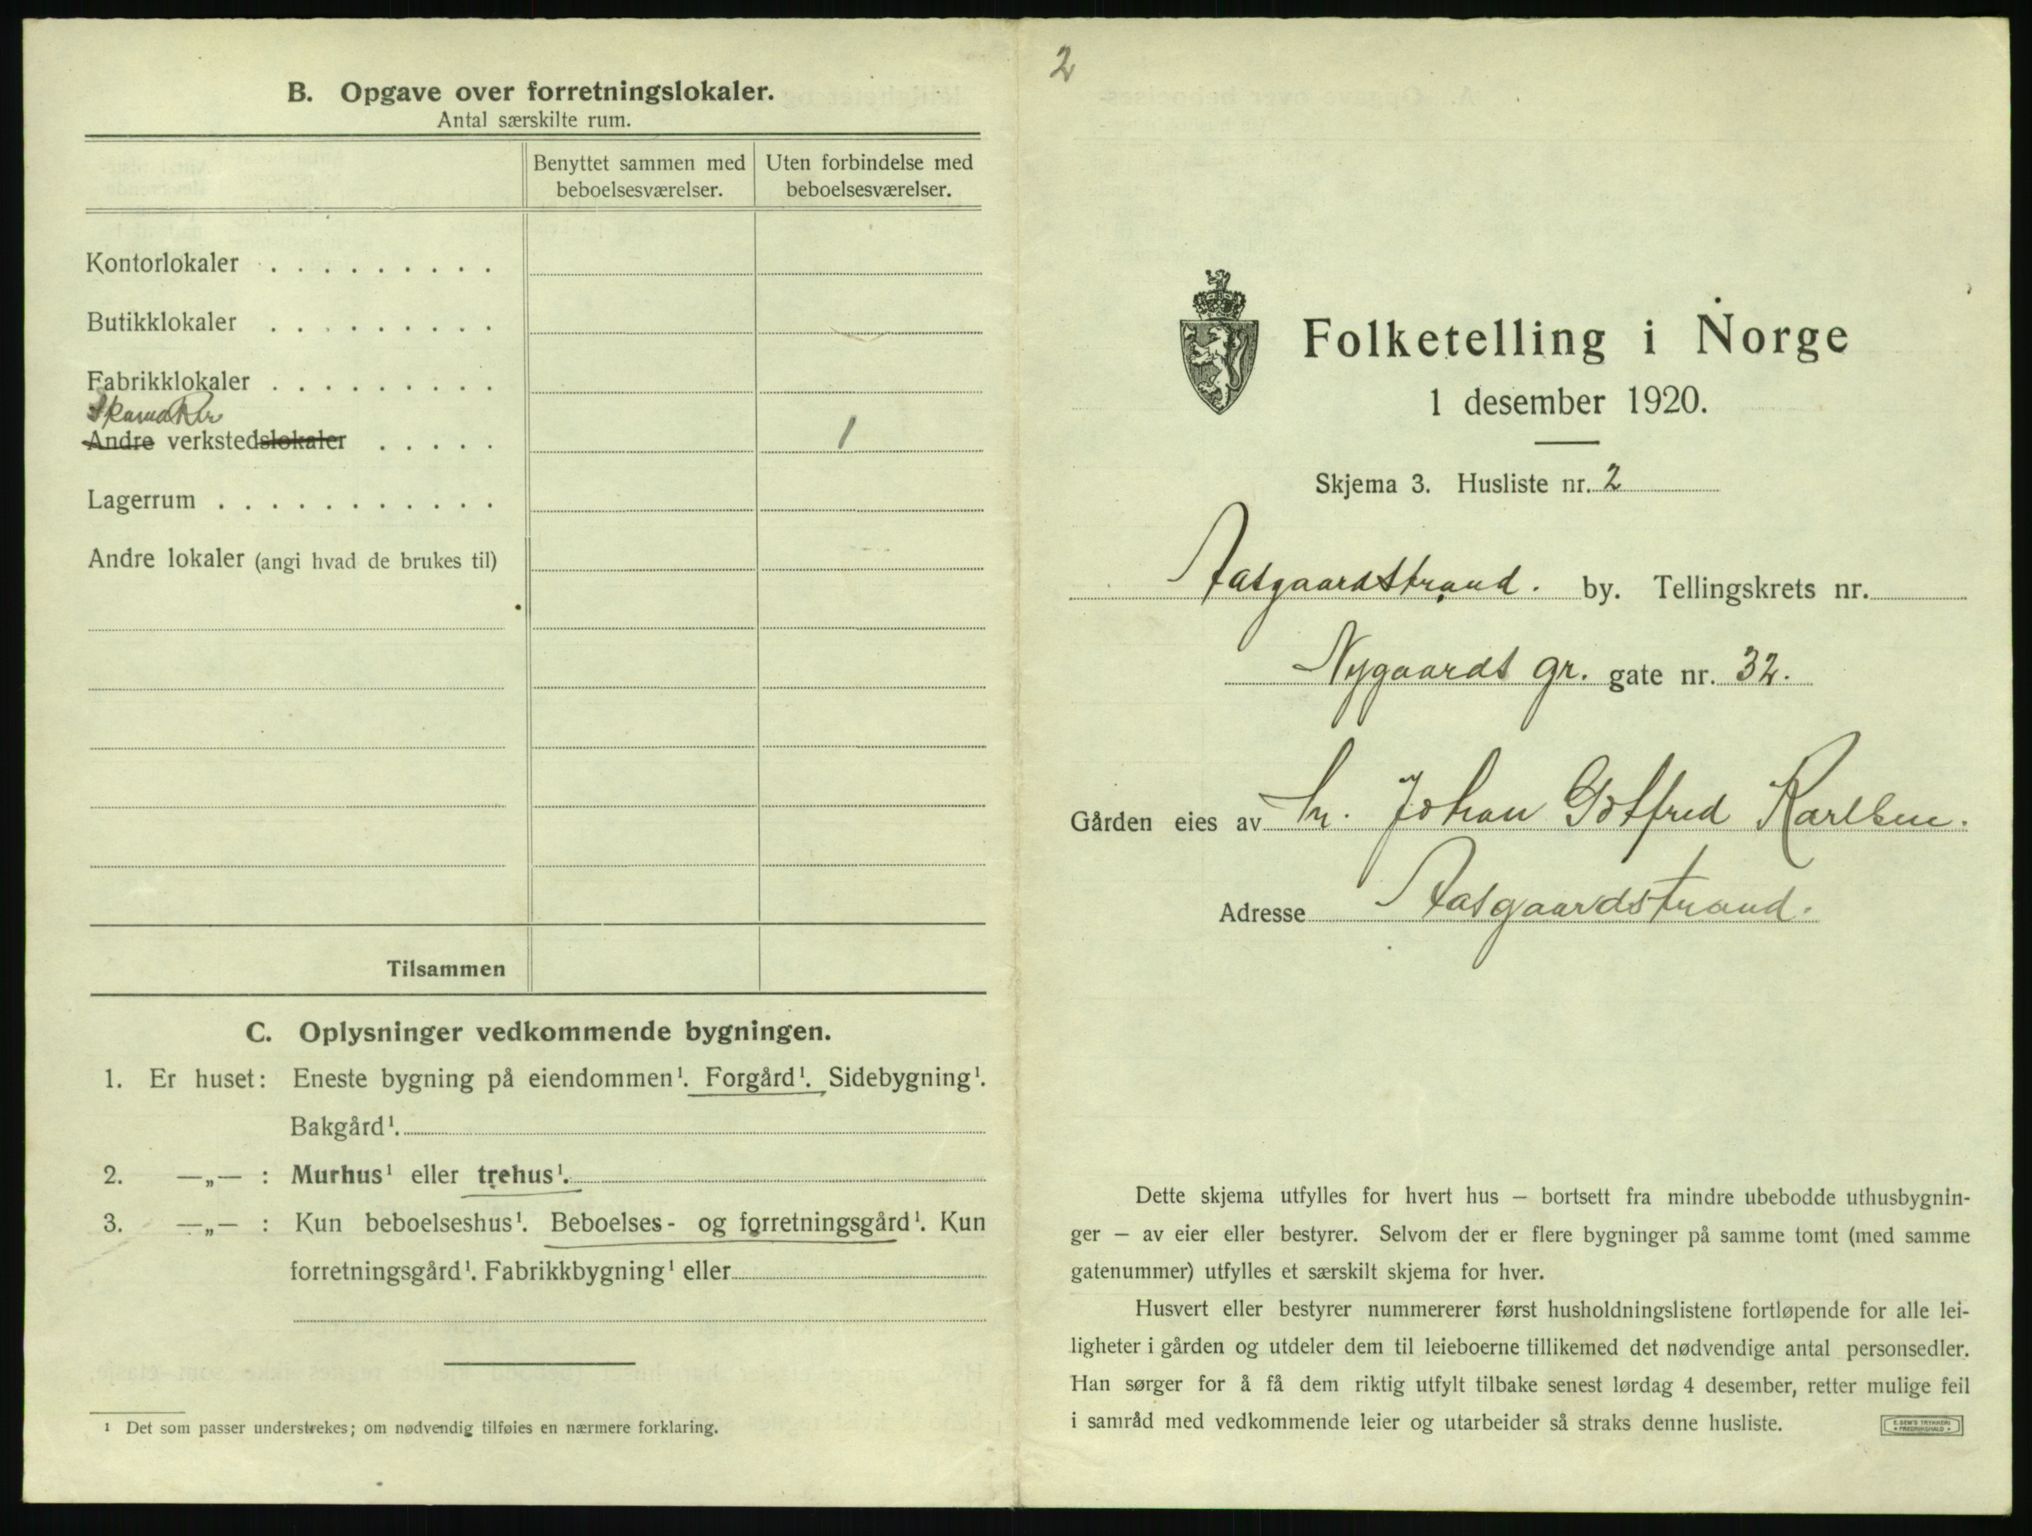 B. Opgave over forretningslokaler.
Antal særskilte rum.
Benyttet sammen med beboelsesværelser.
Uten forbindelse med beboelsesværelser.
Kontorlokaler . . . . . . . . .
Butikklokaler . . . . . . . . .
Fabrikklokaler . . . . . . . . .
Skomaker
Andre verkstedslokaler . . . . . 1
Lagerrum . . . . . . . . . . .
Andre lokaler (angi hvad de brukes til)
Tilsammen
C. Oplysninger vedkommende bygningen.
1. Er huset: Eneste bygning på eiendommen¹. Forgård¹. Sidebygning¹.
Bakgård¹.
2. —„— : Murhus¹ eller trehus¹.
3. —„— : Kun beboelseshus¹. Beboelses- og forretningsgård¹. Kun
forretningsgård¹. Fabrikkbygning¹ eller
¹ Det som passer understrekes; om nødvendig tilføies en nærmere forklaring.
2
Folketelling i Norge
1 desember 1920.
Skjema 3. Husliste nr. 2
Aasgaardstrand. by. Tellingskrets nr.
Nygaards gr. gate nr. 32.
Gården eies av hr. Johan Gotfred Karlsen.
Adresse Aasgaardstrand.
Dette skjema utfylles for hvert hus – bortsett fra mindre ubebodde uthusbygnin-
ger – av eier eller bestyrer. Selvom der er flere bygninger på samme tomt (med samme
gatenummer) utfylles et særskilt skjema for hver.
Husvert eller bestyrer nummererer først husholdningslistene fortløpende for alle lei-
ligheter i gården og utdeler dem til leieboerne tillikemed det nødvendige antal personsedler.
Han sørger for å få dem riktig utfylt tilbake senest lørdag 4 desember, retter mulige feil
i samråd med vedkommende leier og utarbeider så straks denne husliste.
E. SEM'S TRYKKERI
FREDRIKSHALD